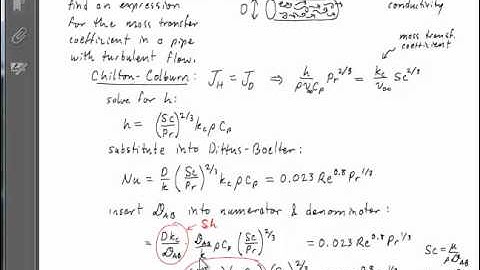 find an expression
for the mass transfer
coefficient in a pipe
with turbulent flow.
conductivity
mass transf.
coefficient
Chilton-Colburn: J_H = J_D ⇒ h/(ρ v∞ Cp) Pr^2/3 = kc/v∞ Sc^2/3
solve for h:
h = (Sc/Pr)^2/3 kc ρ Cp
substitute into Dittus-Boelter:
Nu = D/k (Sc/Pr)^2/3 kc ρ Cp = 0.023 Re^0.8 Pr^1/3
insert D_AB into numerator & denominator:
Sh
= (D kc/D_AB) · D_AB/k ρ Cp (Sc/Pr)^2/3 = 0.023 Re^0.8 Pr^1/3
Sc = μ/(ρ D_AB)